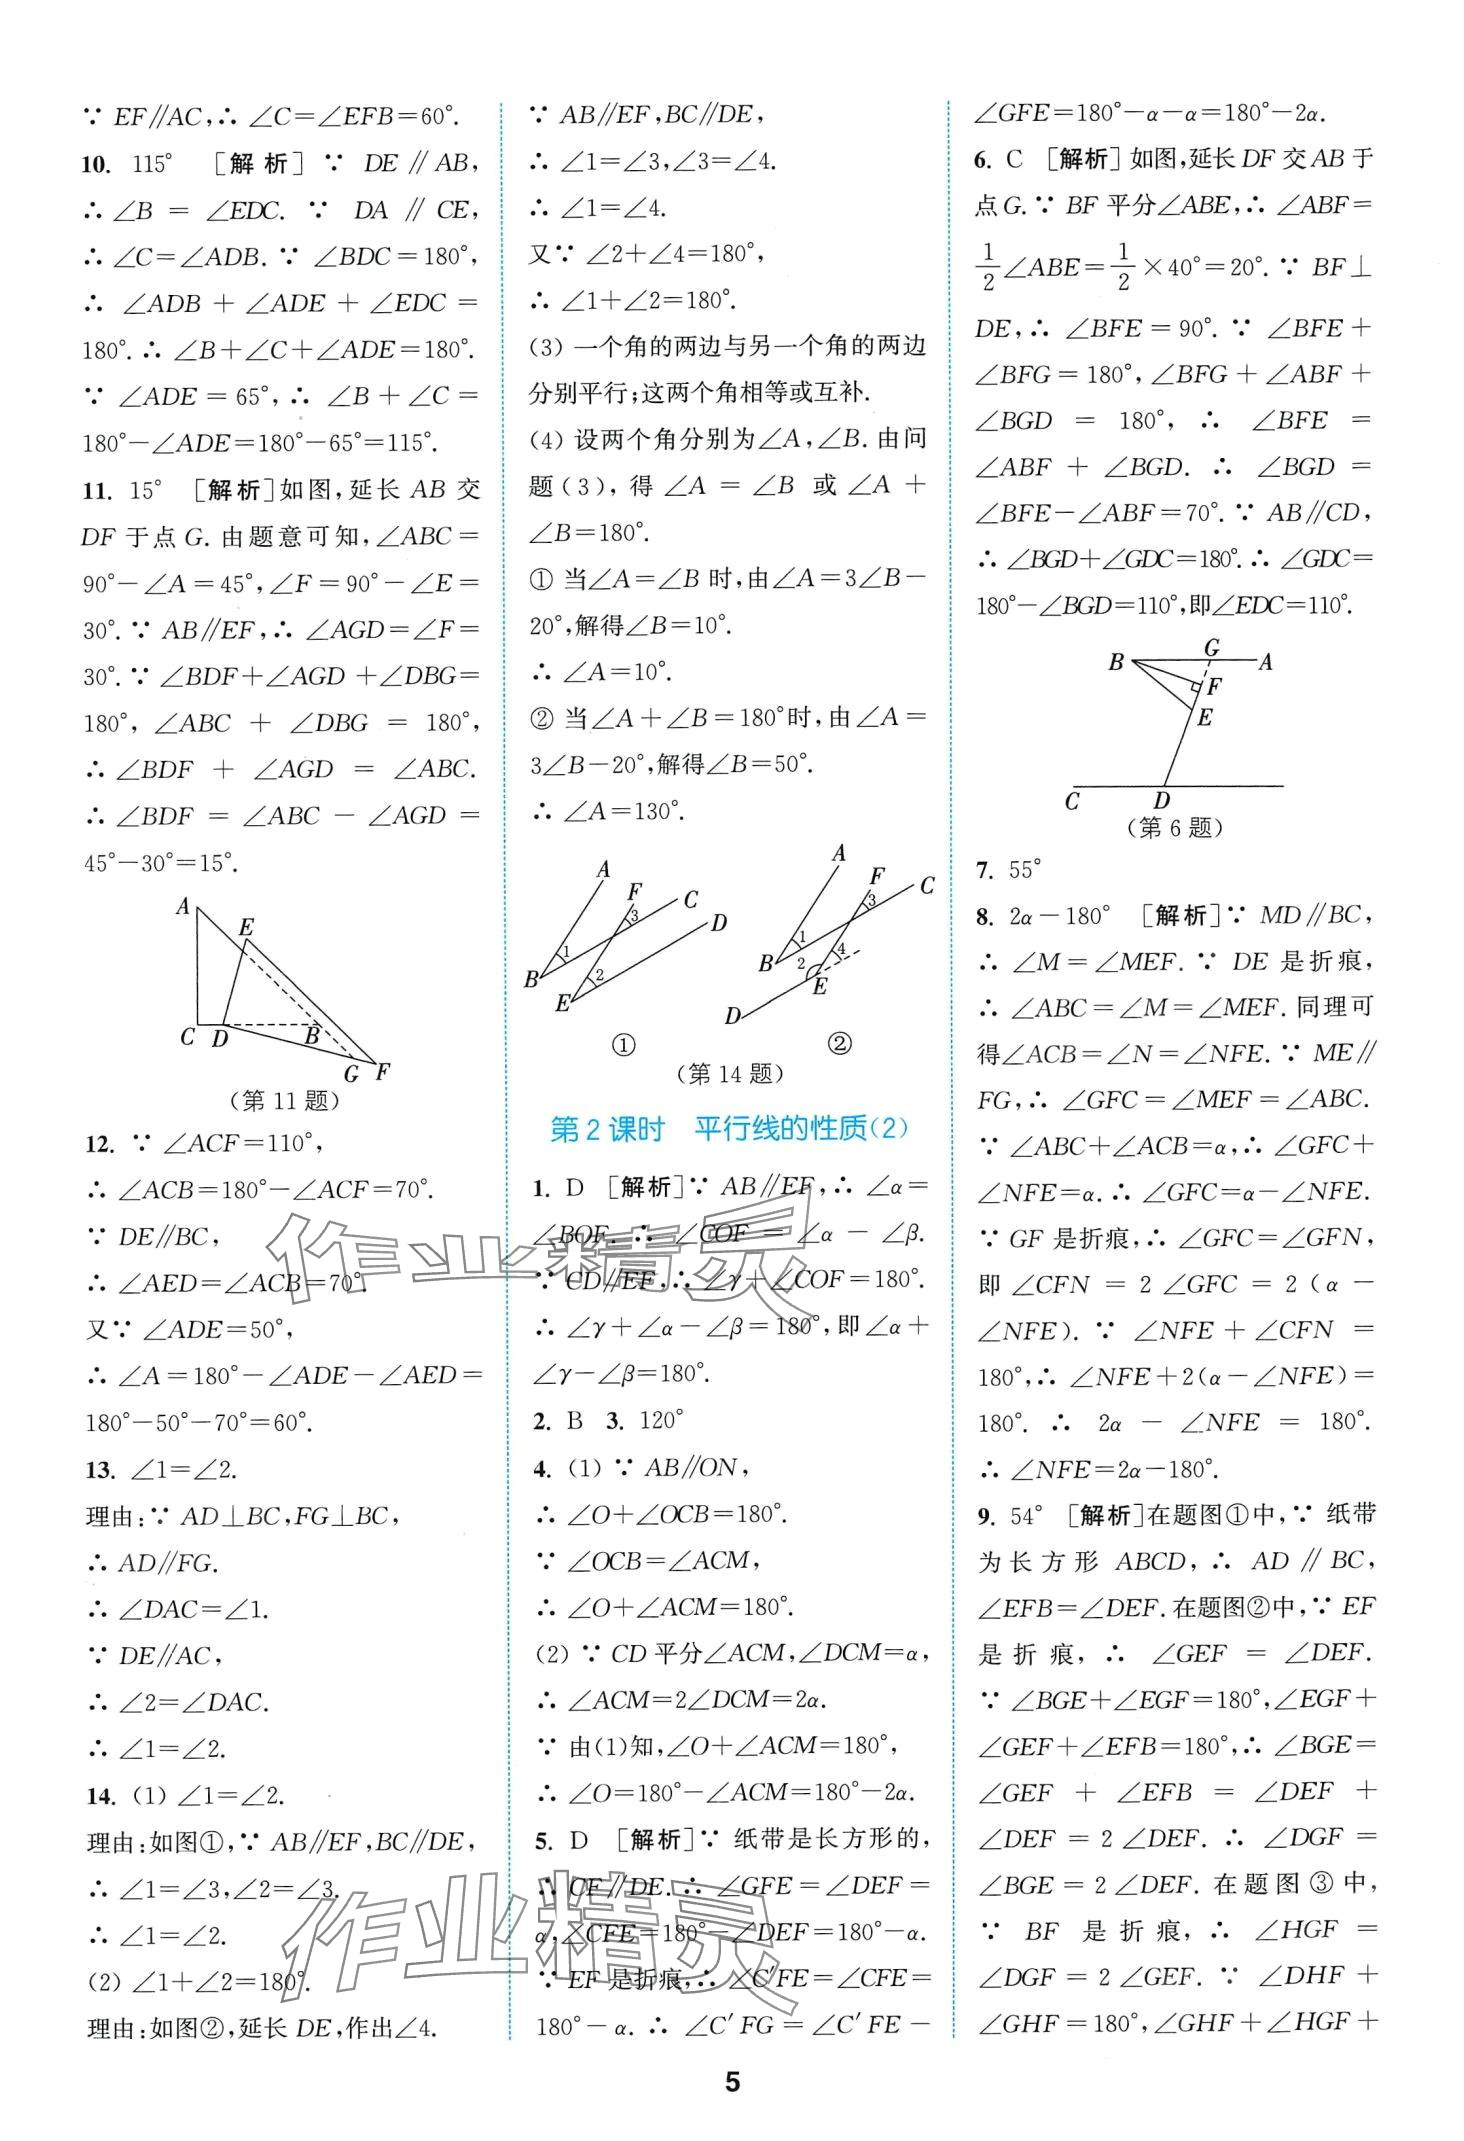 ∵ EF∥AC,∴ ∠C=∠EFB=60°.
10. 115° [解析] ∵ DE∥AB,
∴ ∠B = ∠EDC. ∵ DA∥CE,
∴ ∠C=∠ADB. ∵ ∠BDC=180°,
∴ ∠ADB + ∠ADE + ∠EDC =
180°. ∴ ∠B+∠C+∠ADE=180°.
∵ ∠ADE=65°, ∴ ∠B+∠C=
180°-∠ADE=180°-65°=115°.
11. 15° [解析]如图,延长 AB 交
DF 于点 G. 由题意可知,∠ABC=
90°-∠A=45°,∠F=90°-∠E=
30°. ∵ AB∥EF,∴ ∠AGD=∠F=
30°. ∵ ∠BDF+∠AGD+∠DBG=
180°, ∠ABC + ∠DBG = 180°,
∴ ∠BDF + ∠AGD = ∠ABC.
∴ ∠BDF = ∠ABC - ∠AGD =
45°-30°=15°.
A
E
C D B
G F
(第 11 题)
12. ∵ ∠ACF=110°,
∴ ∠ACB=180°-∠ACF=70°.
∵ DE∥BC,
∴ ∠AED=∠ACB=70°.
又∵ ∠ADE=50°,
∴ ∠A=180°-∠ADE-∠AED=
180°-50°-70°=60°.
13. ∠1=∠2.
理由:∵ AD⊥BC,FG⊥BC,
∴ AD∥FG.
∴ ∠DAC=∠1.
∵ DE∥AC,
∴ ∠2=∠DAC.
∴ ∠1=∠2.
14. (1) ∠1=∠2.
理由:如图①,∵ AB∥EF,BC∥DE,
∴ ∠1=∠3,∠2=∠3.
∴ ∠1=∠2.
(2) ∠1+∠2=180°.
理由:如图②,延长 DE,作出∠4.
∵ AB∥EF,BC∥DE,
∴ ∠1=∠3,∠3=∠4.
∴ ∠1=∠4.
又∵ ∠2+∠4=180°,
∴ ∠1+∠2=180°.
(3) 一个角的两边与另一个角的两边
分别平行;这两个角相等或互补.
(4) 设两个角分别为∠A,∠B. 由问
题(3), 得 ∠A = ∠B 或 ∠A +
∠B=180°.
① 当∠A=∠B 时,由∠A=3∠B-
20°,解得∠B=10°.
∴ ∠A=10°.
② 当∠A+∠B=180°时,由∠A=
3∠B-20°,解得∠B=50°.
∴ ∠A=130°.
A F C D B E 1 2 3
A F C B E D 1 2 3 4
① ②
(第 14 题)
第 2 课时 平行线的性质(2)
1. D [解析]∵ AB∥EF,∴ ∠α=
∠BOF. ∴ ∠COF = ∠α - ∠β.
∵ CD∥EF,∴ ∠γ+∠COF=180°.
∴ ∠γ+∠α-∠β=180°,即∠α+
∠γ-∠β=180°.
2. B 3. 120°
4. (1) ∵ AB∥ON,
∴ ∠O+∠OCB=180°.
∵ ∠OCB=∠ACM,
∴ ∠O+∠ACM=180°.
(2) ∵ CD 平分∠ACM,∠DCM=α,
∴ ∠ACM=2∠DCM=2α.
∵ 由(1)知,∠O+∠ACM=180°,
∴ ∠O=180°-∠ACM=180°-2α.
5. D [解析]∵ 纸带是长方形的,
∴ CF∥DE. ∴ ∠GFE=∠DEF=
α,∠CFE=180°-∠DEF=180°-α.
∵ EF 是折痕,∴ ∠C′FE=∠CFE=
180°-α. ∴ ∠C′FG=∠C′FE-
∠GFE=180°-α-α=180°-2α.
6. C [解析]如图,延长 DF 交 AB 于
点 G. ∵ BF 平分∠ABE,∴ ∠ABF=
1/2∠ABE=1/2×40°=20°. ∵ BF⊥
DE,∴ ∠BFE=90°. ∵ ∠BFE+
∠BFG=180°,∠BFG+∠ABF+
∠BGD = 180°, ∴ ∠BFE =
∠ABF + ∠BGD. ∴ ∠BGD =
∠BFE-∠ABF=70°. ∵ AB∥CD,
∴ ∠BGD+∠GDC=180°. ∴ ∠GDC=
180°-∠BGD=110°,即∠EDC=110°.
B G A
F
E
C D
(第 6 题)
7. 55°
8. 2α-180° [解析]∵ MD∥BC,
∴ ∠M=∠MEF. ∵ DE 是折痕,
∴ ∠ABC=∠M=∠MEF. 同理可
得∠ACB=∠N=∠NFE. ∵ ME∥
FG,∴ ∠GFC=∠MEF=∠ABC.
∵ ∠ABC+∠ACB=α,∴ ∠GFC+
∠NFE=α. ∴ ∠GFC=α-∠NFE.
∵ GF 是折痕,∴ ∠GFC=∠GFN,
即 ∠CFN = 2∠GFC = 2(α -
∠NFE). ∵ ∠NFE+∠CFN=
180°,∴ ∠NFE+2(α-∠NFE)=
180°. ∴ 2α - ∠NFE = 180°.
∴ ∠NFE=2α-180°.
9. 54° [解析]在题图①中,∵ 纸带
为长方形 ABCD, ∴ AD∥BC,
∠EFB=∠DEF. 在题图②中,∵ EF
是折痕, ∴ ∠GEF = ∠DEF.
∵ ∠BGE+∠EGF=180°,∠EGF+
∠GEF+∠EFB=180°,∴ ∠BGE=
∠GEF + ∠EFB = ∠DEF +
∠DEF = 2∠DEF. ∴ ∠DGF =
∠BGE=2∠DEF. 在题图③中,
∵ BF 是折痕, ∴ ∠HGF =
∠DGF = 2∠GEF. ∵ ∠DHF +
∠GHF=180°,∠GHF+∠HGF+
作业精灵
作业精灵
5